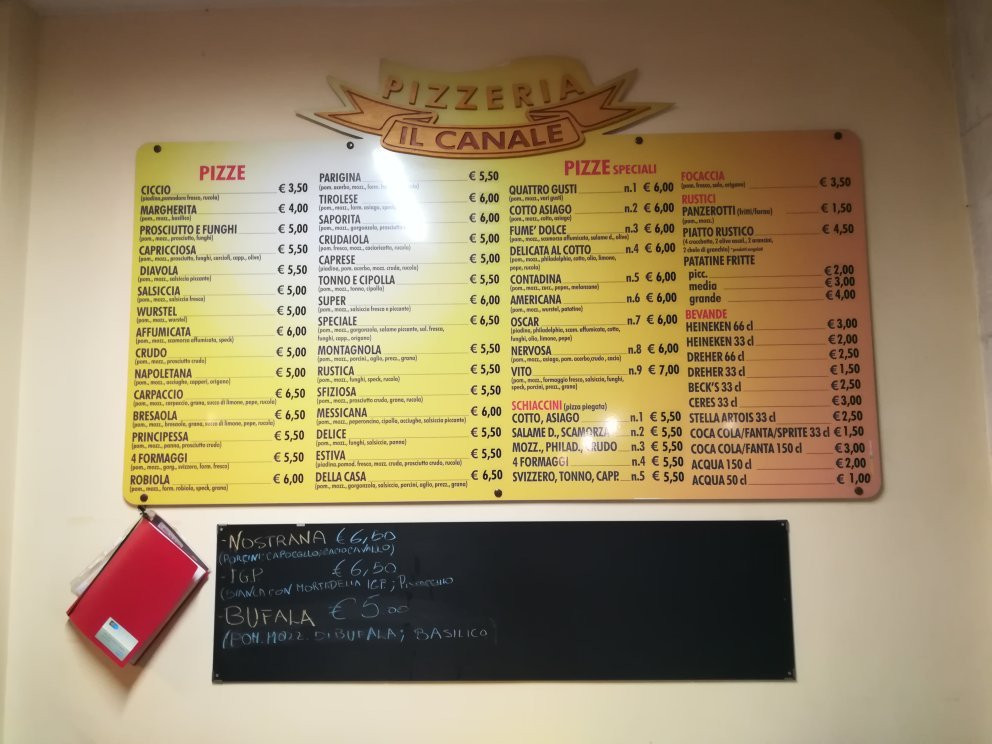 PIZZERIA
IL CANALE
PIZZE
CICCIO € 3,50
(piadina, pomodoro fresco, rucola)
MARGHERITA € 4,00
(pom., mozz., basilico)
PROSCIUTTO E FUNGHI € 5,00
(pom., mozz., prosciutto, funghi)
CAPRICCIOSA € 5,50
(pom., mozz., prosciutto, funghi, carciofi, capp., olive)
DIAVOLA € 5,50
(pom., mozz., salsiccia piccante)
SALSICCIA € 5,00
(pom., mozz., salsiccia fresca)
WURSTEL € 5,00
(pom., mozz., wurstel)
AFFUMICATA € 6,00
(pom., mozz., scamorza affumicata, speck)
CRUDO € 5,00
(pom., mozz., prosciutto crudo)
NAPOLETANA € 5,00
(pom., mozz., acciughe, capperi, origano)
CARPACCIO € 6,50
(pom., mozz., carpaccio, grana, succo di limone, pepe, rucola)
BRESAOLA € 6,50
(pom., mozz., bresaola, grana, succo di limone, pepe, rucola)
PRINCIPESSA € 5,50
(pom., mozz., panna, prosciutto crudo)
4 FORMAGGI € 5,50
(pom., mozz., gorg., svizzero, form. fresco)
ROBIOLA € 6,00
(pom., mozz., form. robiola, speck, grana)
PARIGINA € 5,50
(pom. acerbo, mozz., form.
TIROLESE € 6,00
(pom., mozz., form. asiago, speck
SAPORITA € 6,00
(pom., mozz., gorgonzola, prosciutto
CRUDAIOLA € 5,00
(pom. fresco, mozz., cacioricotta, rucola)
CAPRESE € 5,00
(piadina, pom. acerbo, mozz. cruda, rucola)
TONNO E CIPOLLA € 5,50
(pom., mozz., tonno, cipolla)
SUPER € 6,00
(pom., mozz., salsiccia fresca e piccante)
SPECIALE € 6,50
(pom., mozz., gorgonzola, salame piccante, sal. fresca,
funghi, capp., origano)
MONTAGNOLA € 5,50
(pom., mozz., porcini, aglio, prezz., grana)
RUSTICA € 5,50
(pom., mozz., funghi, speck, rucola)
SFIZIOSA € 5,50
(pom., mozz., prosciutto crudo, grana, rucola)
MESSICANA € 6,00
(pom., mozz., peperoncino, cipolla, acciughe, salsiccia piccante)
DELICE € 5,50
(pom., mozz., funghi, salsiccia, panna)
ESTIVA € 5,50
(piadina, pomod. fresco, mozz. cruda, prosciutto crudo, rucola)
DELLA CASA € 6,50
(pom., mozz., gorgonzola, salsiccia, porcini, aglio, prezz., grana)
PIZZE SPECIALI
QUATTRO GUSTI n.1 € 6,00
(pom., mozz., vari gusti)
COTTO ASIAGO n.2 € 6,00
(pom., mozz., cotto, asiago)
FUME' DOLCE n.3 € 6,00
(pom., mozz., scamorza affumicata, salame d., olive)
DELICATA AL COTTO n.4 € 6,00
(pom., mozz., philadelphia, cotto, olio, limone,
pepe, rucola)
CONTADINA n.5 € 6,00
(pom., mozz., zucc., pepes., melanzane)
AMERICANA n.6 € 6,00
(pom., mozz., wurstel, patatine)
OSCAR n.7 € 6,00
(piadina, philadelphia, scam. affumicata, cotto,
funghi, olio, limone, pepe)
NERVOSA n.8 € 6,00
(pom., mozz., asiago, pom. acerbo, crudo, cacio)
VITO n.9 € 7,00
(pom., mozz., formaggio fresco, salsiccia, funghi,
speck, porcini, prezz., grana)
SCHIACCINI (pizza piegata)
COTTO, ASIAGO n.1 € 5,50
SALAME D., SCAMORZA n.2 € 5,50
MOZZ., PHILAD., CRUDO n.3 € 5,50
4 FORMAGGI n.4 € 5,50
SVIZZERO, TONNO, CAPP. n.5 € 5,50
FOCACCIA € 3,50
(pom. fresco, sale, origano)
RUSTICI
PANZEROTTI (fritti/forno) € 1,50
(pom., mozz.)
PIATTO RUSTICO € 4,50
(4 crocchette, 2 olive ascol., 2 arancini,
2 chele di granchio)
PATATINE FRITTE
picc. € 2,00
media € 3,00
grande € 4,00
BEVANDE
HEINEKEN 66 cl € 3,00
HEINEKEN 33 cl € 2,00
DREHER 66 cl € 2,50
DREHER 33 cl € 1,50
BECK'S 33 cl € 2,50
CERES 33 cl € 3,00
STELLA ARTOIS 33 cl € 2,50
COCA COLA/FANTA/SPRITE 33 cl € 1,50
COCA COLA/FANTA 150 cl € 3,00
ACQUA 150 cl € 2,00
ACQUA 50 cl € 1,00
-NOSTRANA € 6,50
(PORCINI-CAPOCOLLO-CACIOCAVALLO)
-IGP € 6,50
(BIANCA CON MORTADELLA I.G.P.; PISTACCHIO
-BUFALA € 5.00
(POM. MOZZ. DI BUFALA; BASILICO)